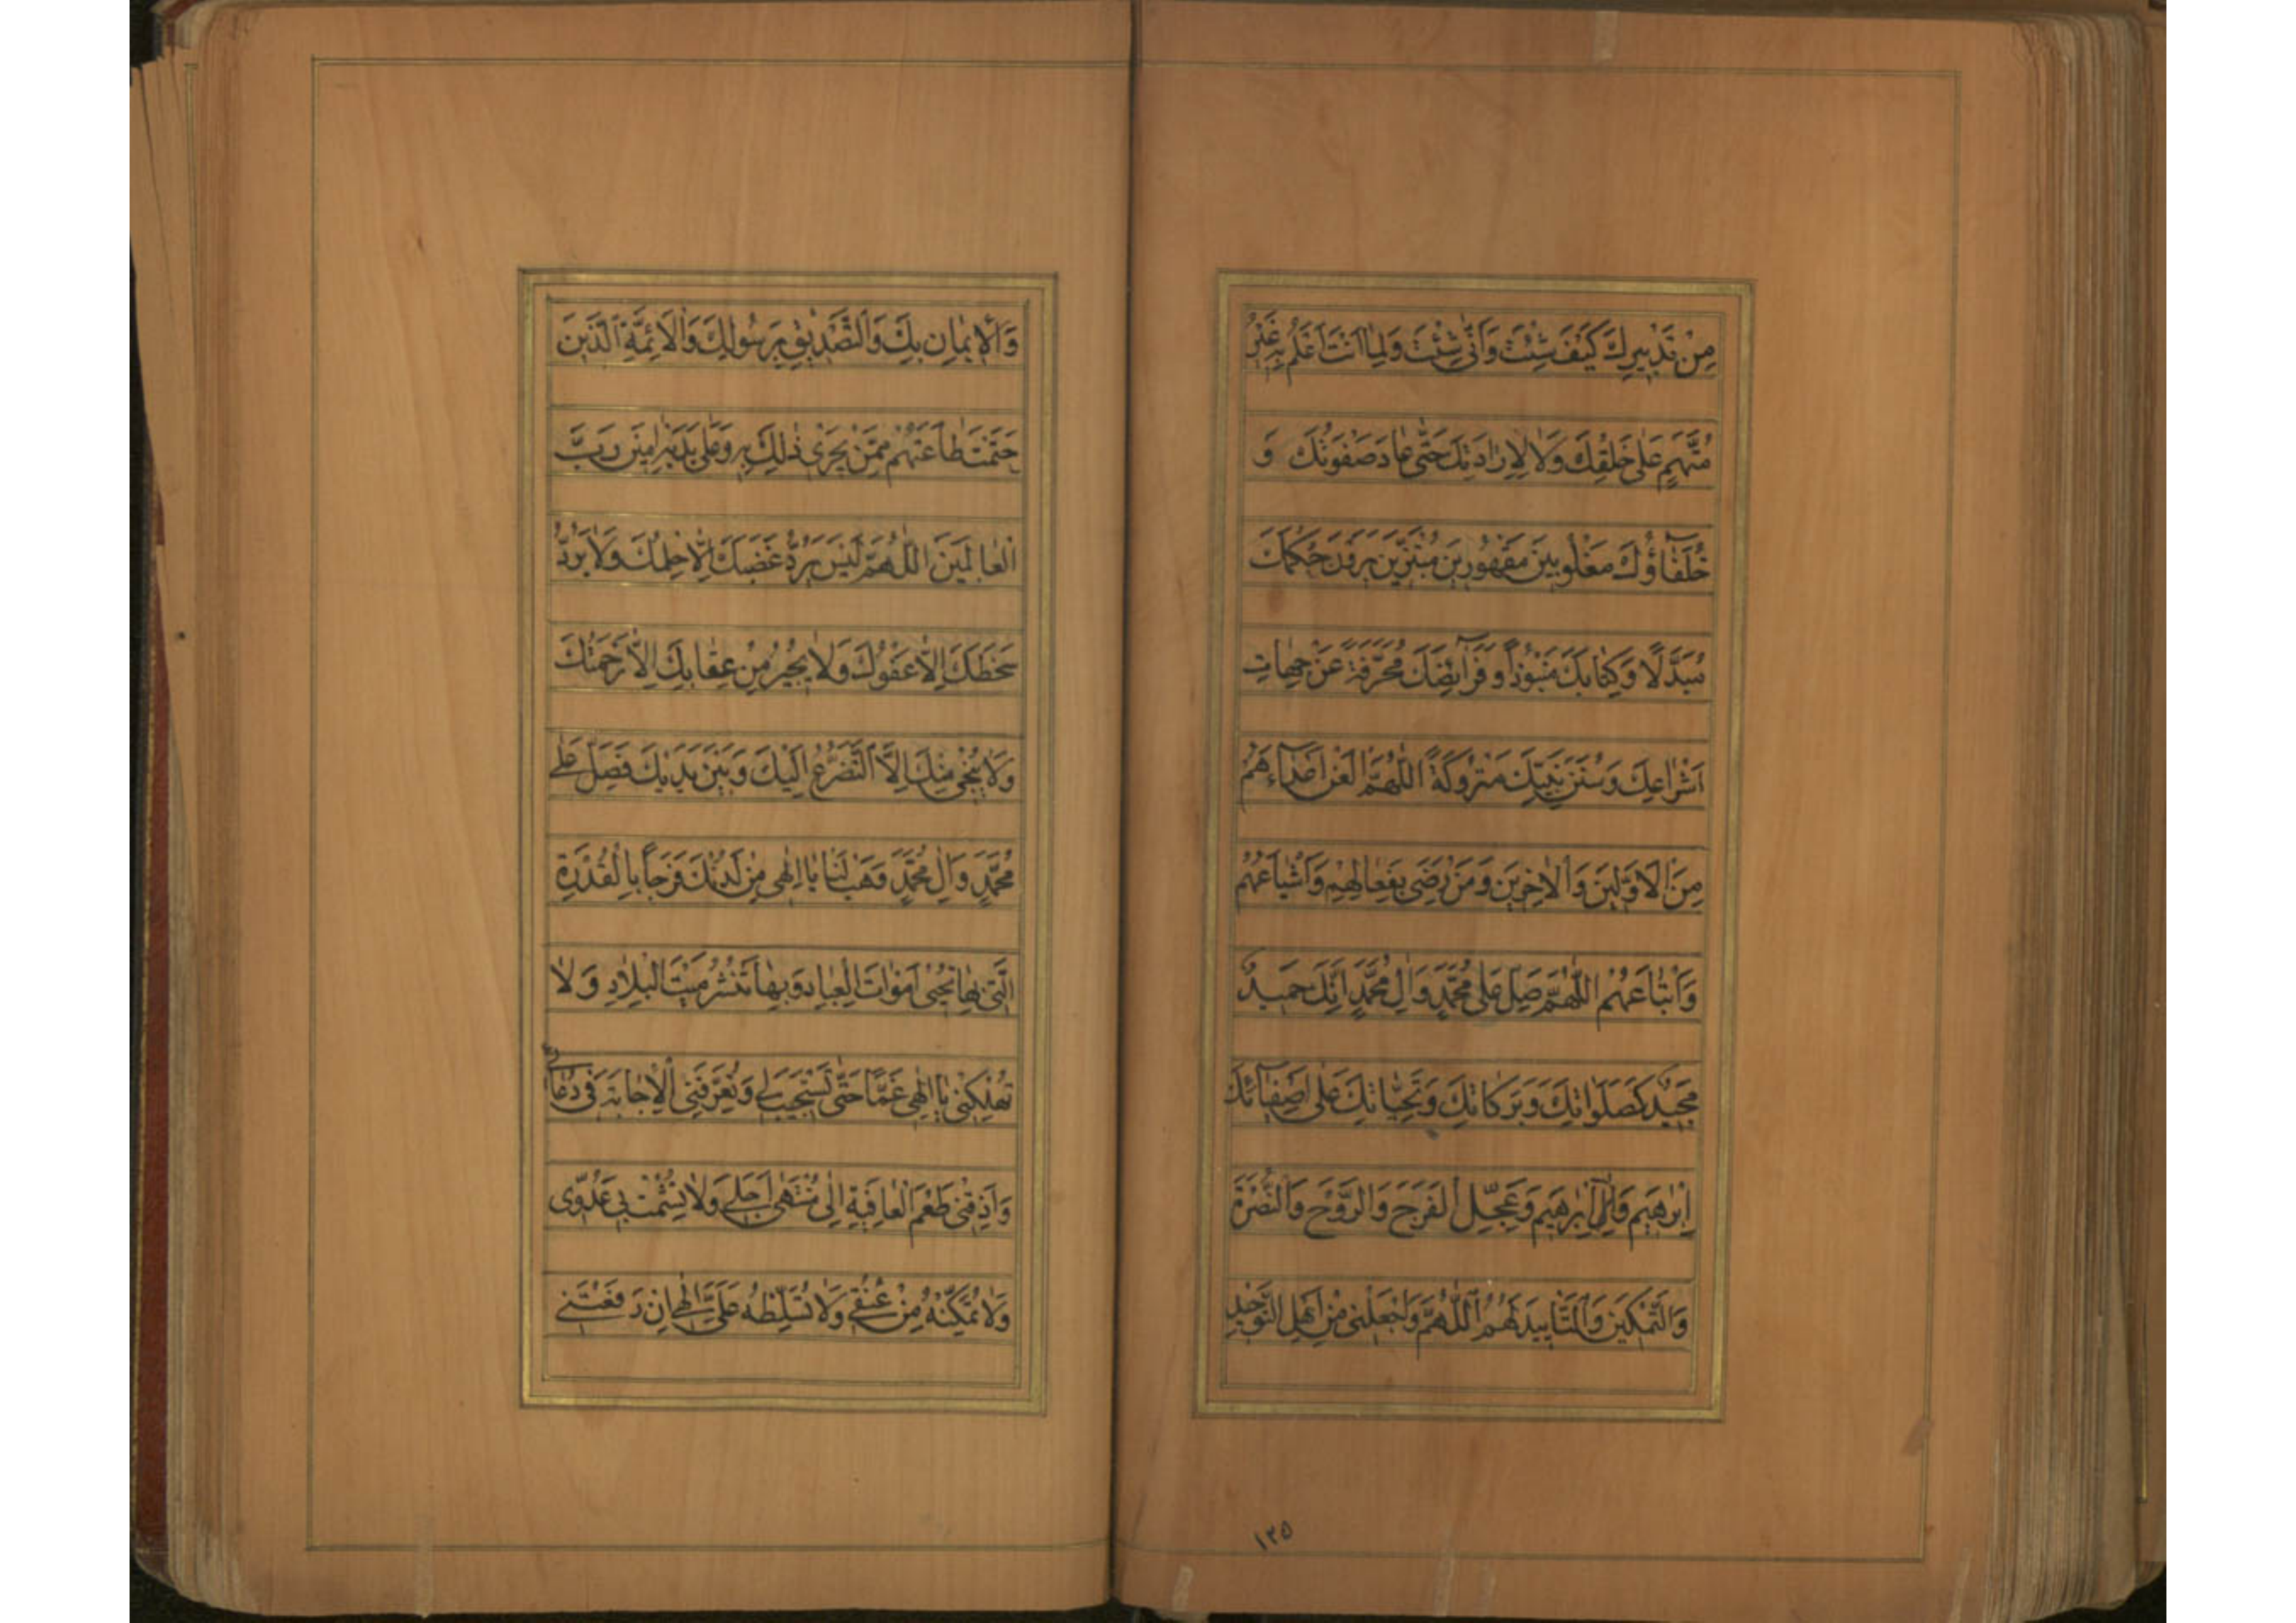 مِنْ تَدْبِيرِكَ كَيْفَ شِئْتَ وَاَنّٰى شِئْتَ وَلِمٰا اَنْتَ اَعْلَمُ بِهِ غَيْرُ
مُتَّهَمٍ عَلٰى خَلْقِكَ وَلٰا لِاِرٰادَتِكَ حَتّٰى عٰادَ صَفْوَتُكَ وَ
خُلَفٰآؤُكَ مَغْلُوبِينَ مَقْهُورِينَ مُبْتَزِّينَ يَرَوْنَ حُكْمَكَ
مُبَدَّلًا وَكِتٰابَكَ مَنْبُوذاً وَفَرَآئِضَكَ مُحَرَّفَةً عَنْ جِهٰاتِ
اَشْرٰاعِكَ وَسُنَنَ نَبِيِّكَ مَتْرُوكَةً اَللّٰهُمَّ الْعَنْ اَعْدٰآءَهُمْ
مِنَ الْاَوَّلِينَ وَالْاٰخِرِينَ وَمَنْ رَضِيَ بِفِعٰالِهِمْ وَاَشْيٰاعَهُمْ
وَاَتْبٰاعَهُمْ اَللّٰهُمَّ صَلِّ عَلٰى مُحَمَّدٍ وَاٰلِ مُحَمَّدٍ اِنَّكَ حَمِيدٌ
مَجِيدٌ كَصَلَوٰاتِكَ وَبَرَكٰاتِكَ وَتَحِيّٰاتِكَ عَلٰى اَصْفِيٰآئِكَ
اِبْرٰهِيمَ وَاٰلِ اِبْرٰهِيمَ وَعَجِّلِ الْفَرَجَ وَالرَّوْحَ وَالنُّصْرَةَ
وَالتَّمْكِينَ وَالتَّأْيِيدَ لَهُمْ اَللّٰهُمَّ وَاجْعَلْنِي مِنْ اَهْلِ التَّوْحِيدِ
١٢٥
وَالْاِيمٰانِ بِكَ وَالتَّصْدِيقِ بِرَسُولِكَ وَالْاَئِمَّةِ الَّذِينَ
حَتَمْتَ طٰاعَتَهُمْ مِمَّنْ يَجْرِي ذٰلِكَ بِهِ وَعَلٰى يَدَيْهِ اٰمِينَ رَبَّ
الْعٰالَمِينَ اَللّٰهُمَّ لَيْسَ يَرُدُّ غَضَبَكَ اِلّٰا حِلْمُكَ وَلٰا يَرُدُّ
سَخَطَكَ اِلّٰا عَفْوُكَ وَلٰا يُجِيرُ مِنْ عِقٰابِكَ اِلّٰا رَحْمَتُكَ
وَلٰا يُنْجِي مِنْكَ اِلَّا التَّضَرُّعُ اِلَيْكَ وَبَيْنَ يَدَيْكَ فَصَلِّ عَلٰى
مُحَمَّدٍ وَاٰلِ مُحَمَّدٍ وَهَبْ لَنٰا يٰا اِلٰهِي مِنْ لَدُنْكَ فَرَجاً بِالْقُدْرَةِ
الَّتِي بِهٰا تُحْيِي اَمْوٰاتَ الْعِبٰادِ وَبِهٰا تَنْشُرُ مَيْتَ الْبِلٰادِ وَلٰا
تُهْلِكْنِي يٰا اِلٰهِي غَمّاً حَتّٰى تَسْتَجِيبَ لِي وَتُعَرِّفَنِي الْاِجٰابَةَ فِي دُعٰائِي
وَاَذِقْنِي طَعْمَ الْعٰافِيَةِ اِلٰى مُنْتَهٰى اَجَلِي وَلٰا تُشْمِتْ بِي عَدُوِّي
وَلٰا تُمَكِّنْهُ مِنْ عُنُقِي وَلٰا تُسَلِّطْهُ عَلَيَّ اِلٰهِي اِنْ رَفَعْتَنِي